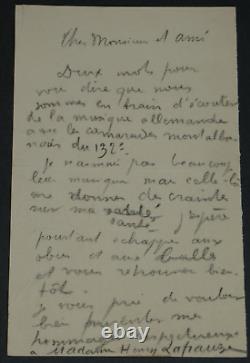 Cher Monsieur et ami
Deux mots pour
vous dire que nous
sommes en train d'écouter
de la musique allemande
avec les camarades montalba
nais du 132e
Je n'aimais pas beaucoup
leur musique mais celle-là
me donner de crainte
sur ma santé j'espère
pourtant échapper aux
obus et aux balles
et vous retrouver bien
tôt.
Je vous prie de vouloir
bien présenter mes
hommages respectueux
à Madame Henry Lapauze